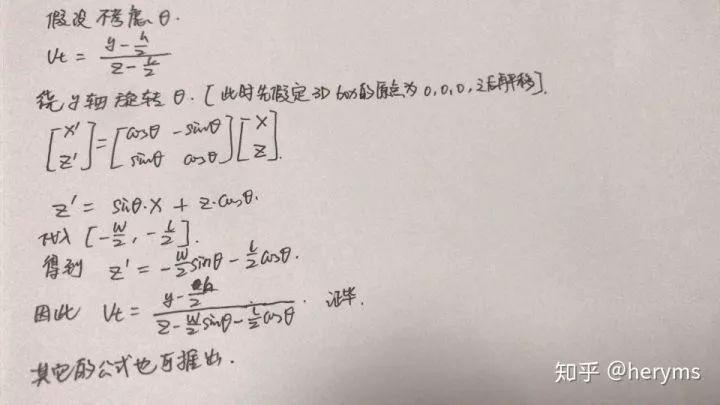 假设不考虑θ.
Vt = (y - h/2) / (z - L/2)
绕y轴旋转θ. [此时先假定3D box的原点为0,0,0,之后再移].
[x' z'] = [cosθ -sinθ sinθ cosθ] [x z].
z' = sinθ·x + z·cosθ.
代入 [-w/2, -L/2].
得到 z' = -w/2 sinθ - L/2 cosθ.
因此 Vt = (y - h/2) / (z - w/2 sinθ - L/2 cosθ). 证毕.
其它的公式也可推出.
知乎 @heryms